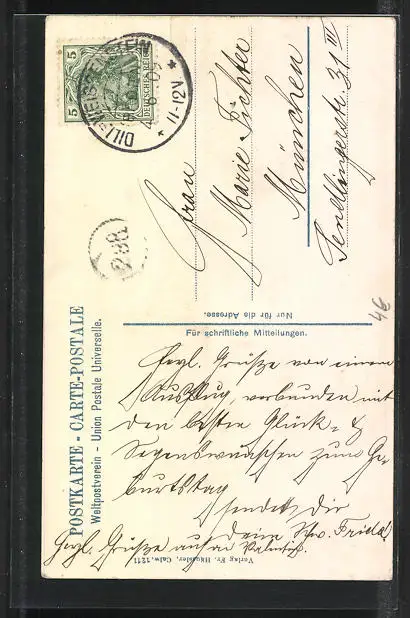 POSTKARTE - CARTE-POSTALE
Weltpostverein - Union Postale Universelle.
5
5
DEUTSCHES REICH
DILL-WEISSENSTEIN
11-12V
288
Frau
Marie Fichter
München
Sendlingerstr. 31 III
Nur für die Adresse.
Für schriftliche Mitteilungen.
4€
Herzl. Grüße von einem
Ausflug, verbunden mit
den besten Glück- &
Segenswünschen zum Ge-
burtstag
sendet Dir
dein Schw. Frieda.
Herzl. Grüße auch an
Verlag Fr. Häussler, Calw. 1211